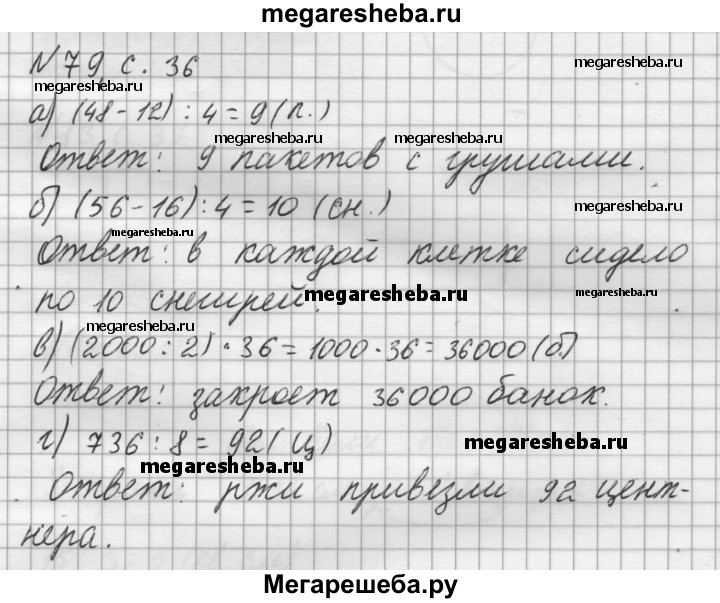 megaresheba.ru
№ 79, с. 36
megaresheba.ru
megaresheba.ru
а) (48 - 12) : 4 = 9 (п.)
megaresheba.ru
megaresheba.ru
Ответ: 9 пакетов с грушами.
б) (56 - 16) : 4 = 10 (сн.)
megaresheba.ru
Ответ: в каждой клетке сидело
по 10 снегирей.
megaresheba.ru
megaresheba.ru
megaresheba.ru
в) (2000 : 2) · 36 = 1000 · 36 = 36000 (б.)
Ответ: закроет 36000 банок.
г) 736 : 8 = 92 (ц)
megaresheba.ru
megaresheba.ru
Ответ: ржи привезли 92 цент-
нера.
Мегарешеба.ру